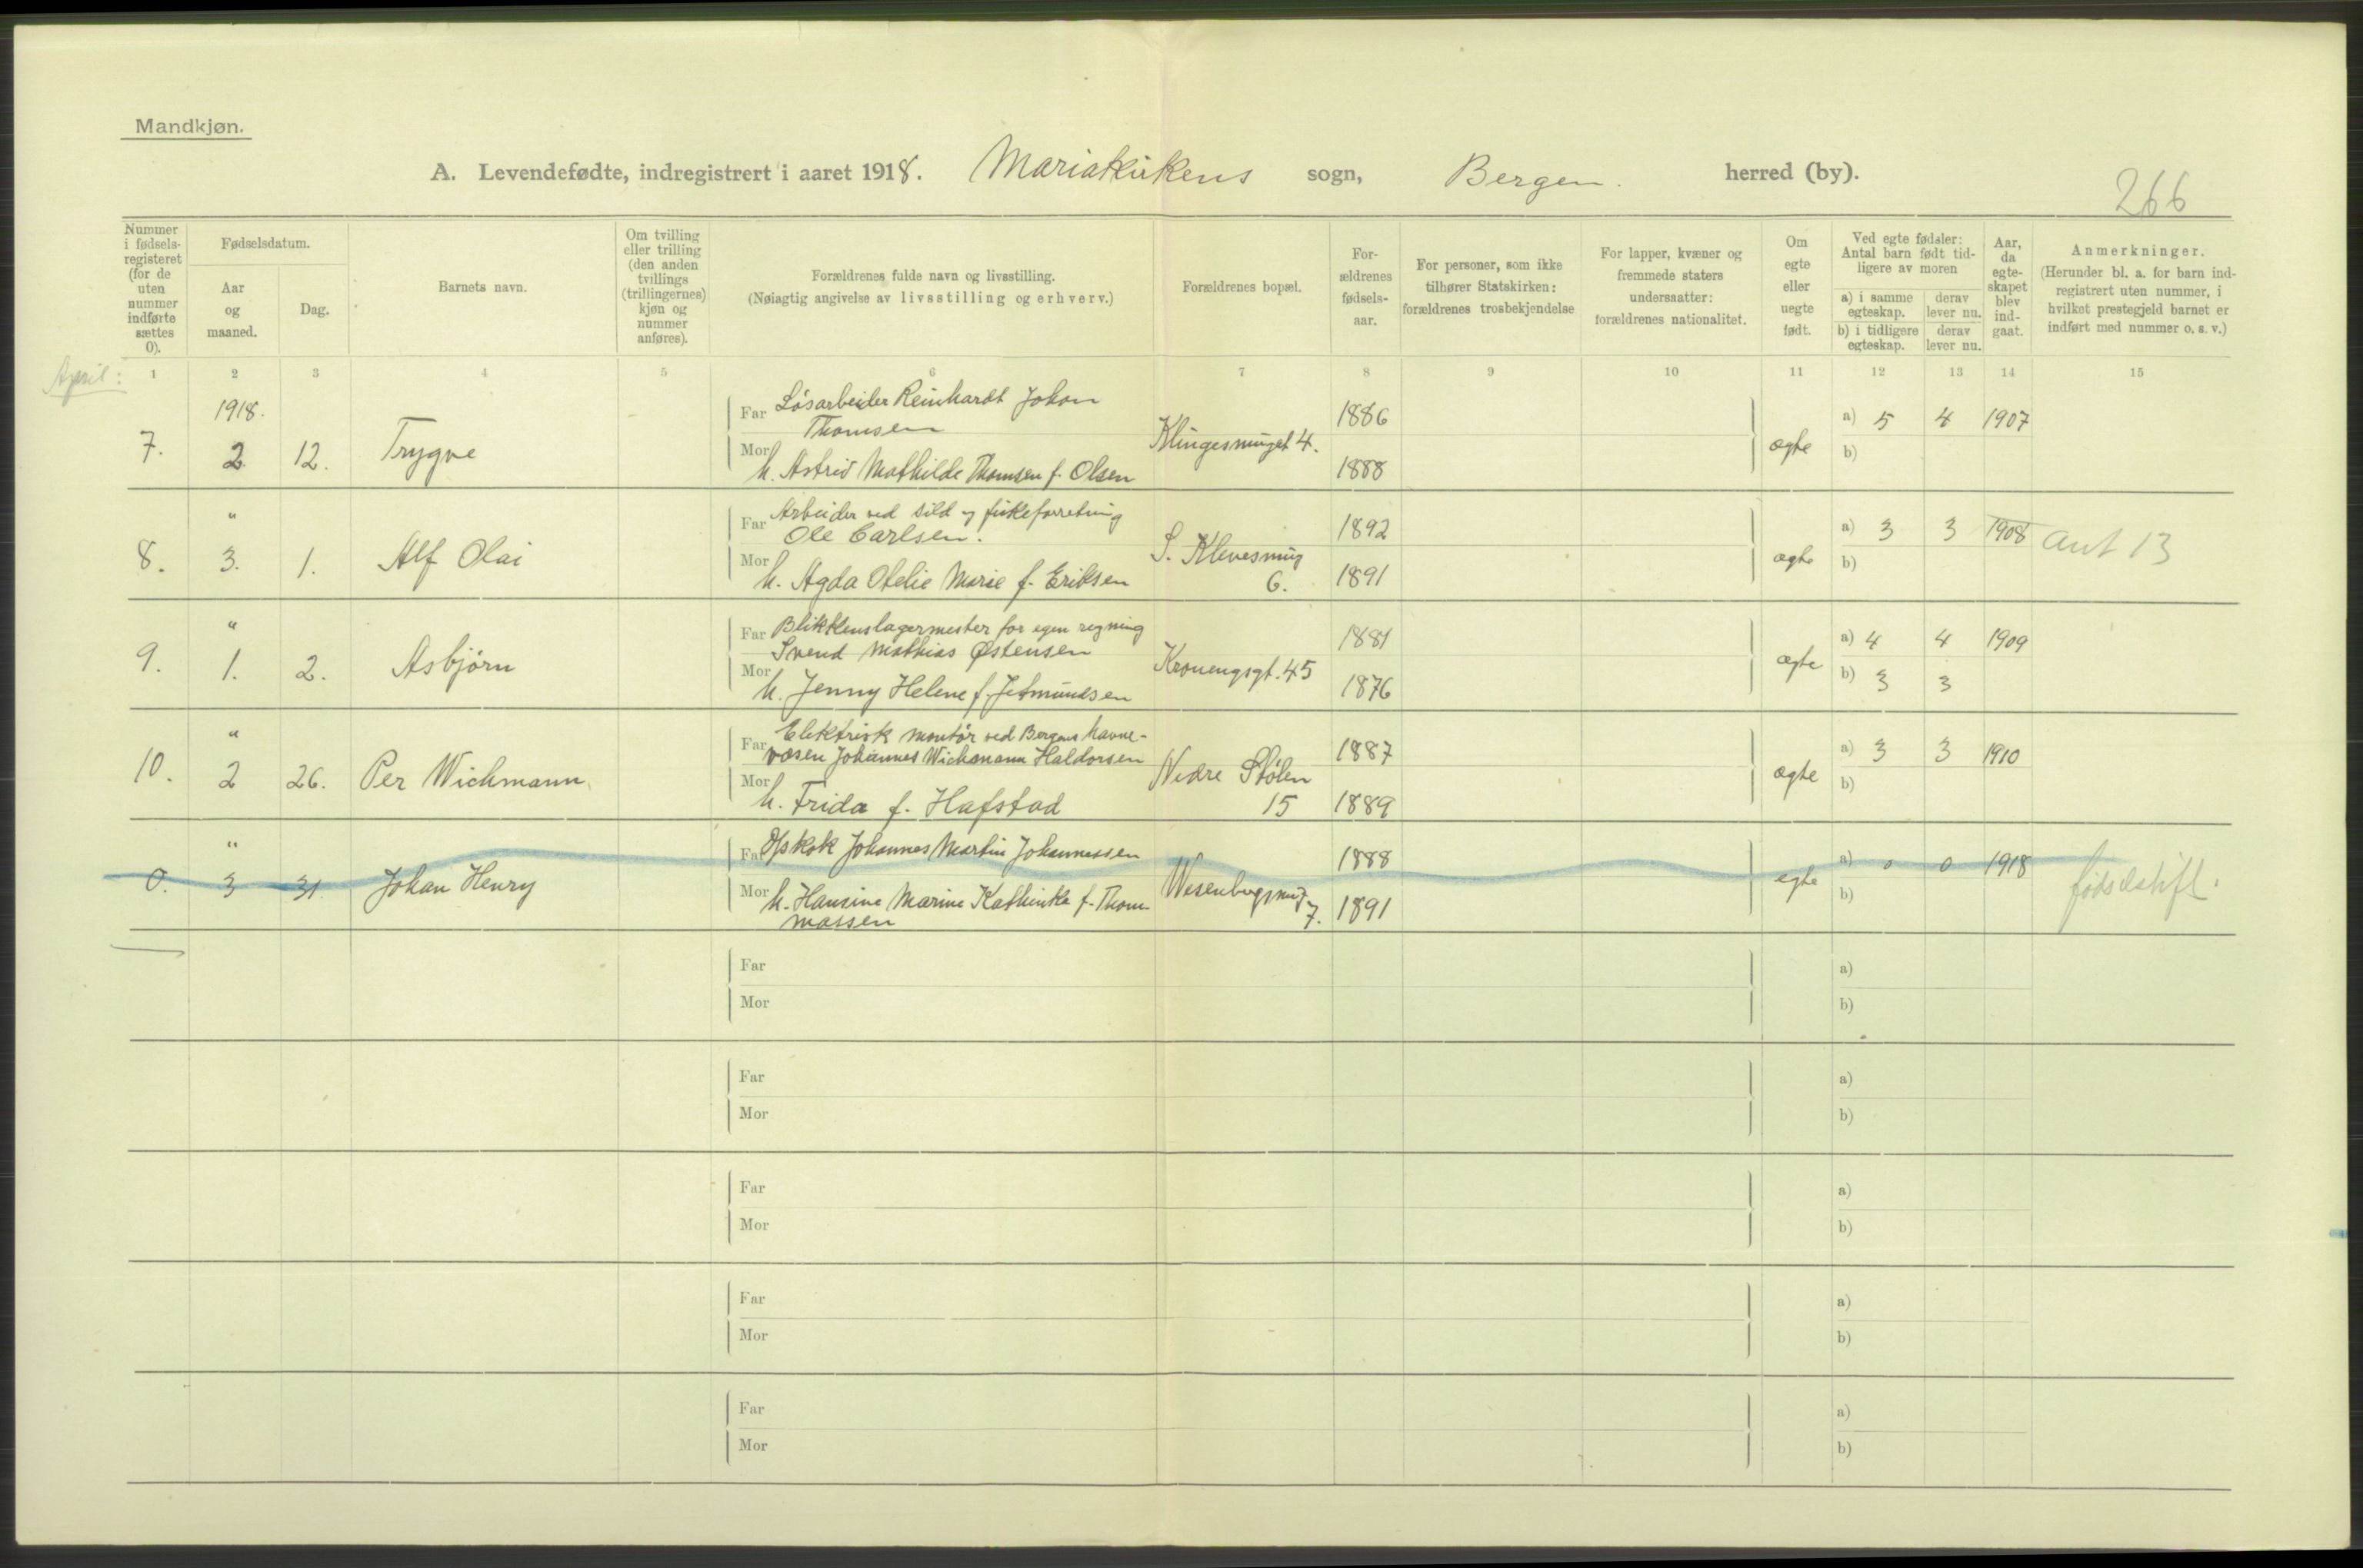 Mandkjøn.
A. Levendefødte, indregistrert i aaret 1918. Mariakirkens sogn, Bergen. herred (by).
266
Nummer i fødsels-registeret (for de uten nummer indførte sættes 0).
Fødselsdatum.
Aar og maaned.
Dag.
Barnets navn.
Om tvilling eller trilling (den anden tvillings (trillingernes) kjøn og nummer anføres).
Forældrenes fulde navn og livsstilling.
(Nøiagtig angivelse av livsstilling og erhverv.)
Forældrenes bopæl.
For-ældrenes fødsels-aar.
For personer, som ikke tilhører Statskirken: forældrenes trosbekjendelse
For lapper, kvæner og fremmede staters undersaatter: forældrenes nationalitet.
Om egte eller uegte født.
Ved egte fødsler: Antal barn født tid-ligere av moren
a) i samme egteskap.
derav lever nu.
b) i tidligere egteskap.
derav lever nu.
Aar, da egte-skapet blev ind-gaat.
Anmerkninger.
(Herunder bl. a. for barn ind-registrert uten nummer, i hvilket prestegjeld barnet er indført med nummer o. s. v.)
April:
1 2 3 4 5 6 7 8 9 10 11 12 13 14 15
1918.
Far Løsarbeider Reinhardt Johan
Thomsen
1886
a) 5 4 1907
7. 2. 12. Trygve
Klingesmuget 4.
ægte
b)
Mor h. Astrid Mathilde Thomsen f. Olsen
1888
"
Far Arbeider ved sild og fiskeforretning
Ole Carlsen.
1892
a) 3 3 1908
ant 13
8. 3. 1. Alf Olai
S. Klevesmug
6.
ægte
b)
Mor h. Agda Otelie Marie f. Eriksen
1891
"
Far Blikkenslagermester for egen regning
Svend Mathias Østensen
1881
a) 4 4 1909
9. 1. 2. Asbjørn
Kronengsgt. 45
ægte
b) 3 3
Mor h. Jenny Helene f. Jetmundsen
1876
"
Far Elektrisk montør ved Bergens Havne-
væsen Johannes Wichmann Haldorsen
1887
a) 3 3 1910
10. 2 26. Per Wichmann
Nedre Stølen
15
ægte
b)
Mor h. Frida f. Hafstad
1889
"
Far Johannes Martin Johannessen
1888
a) 0 0 1918
0. 3 31. Johan Henry
Wesenbergsmug
7.
egte
b)
fødselstift.
Mor h. Hansine Marine Kathinka f. Thom-
massen
1891
Far
a)
Mor
b)
Far
a)
Mor
b)
Far
a)
Mor
b)
Far
a)
Mor
b)
Far
a)
Mor
b)